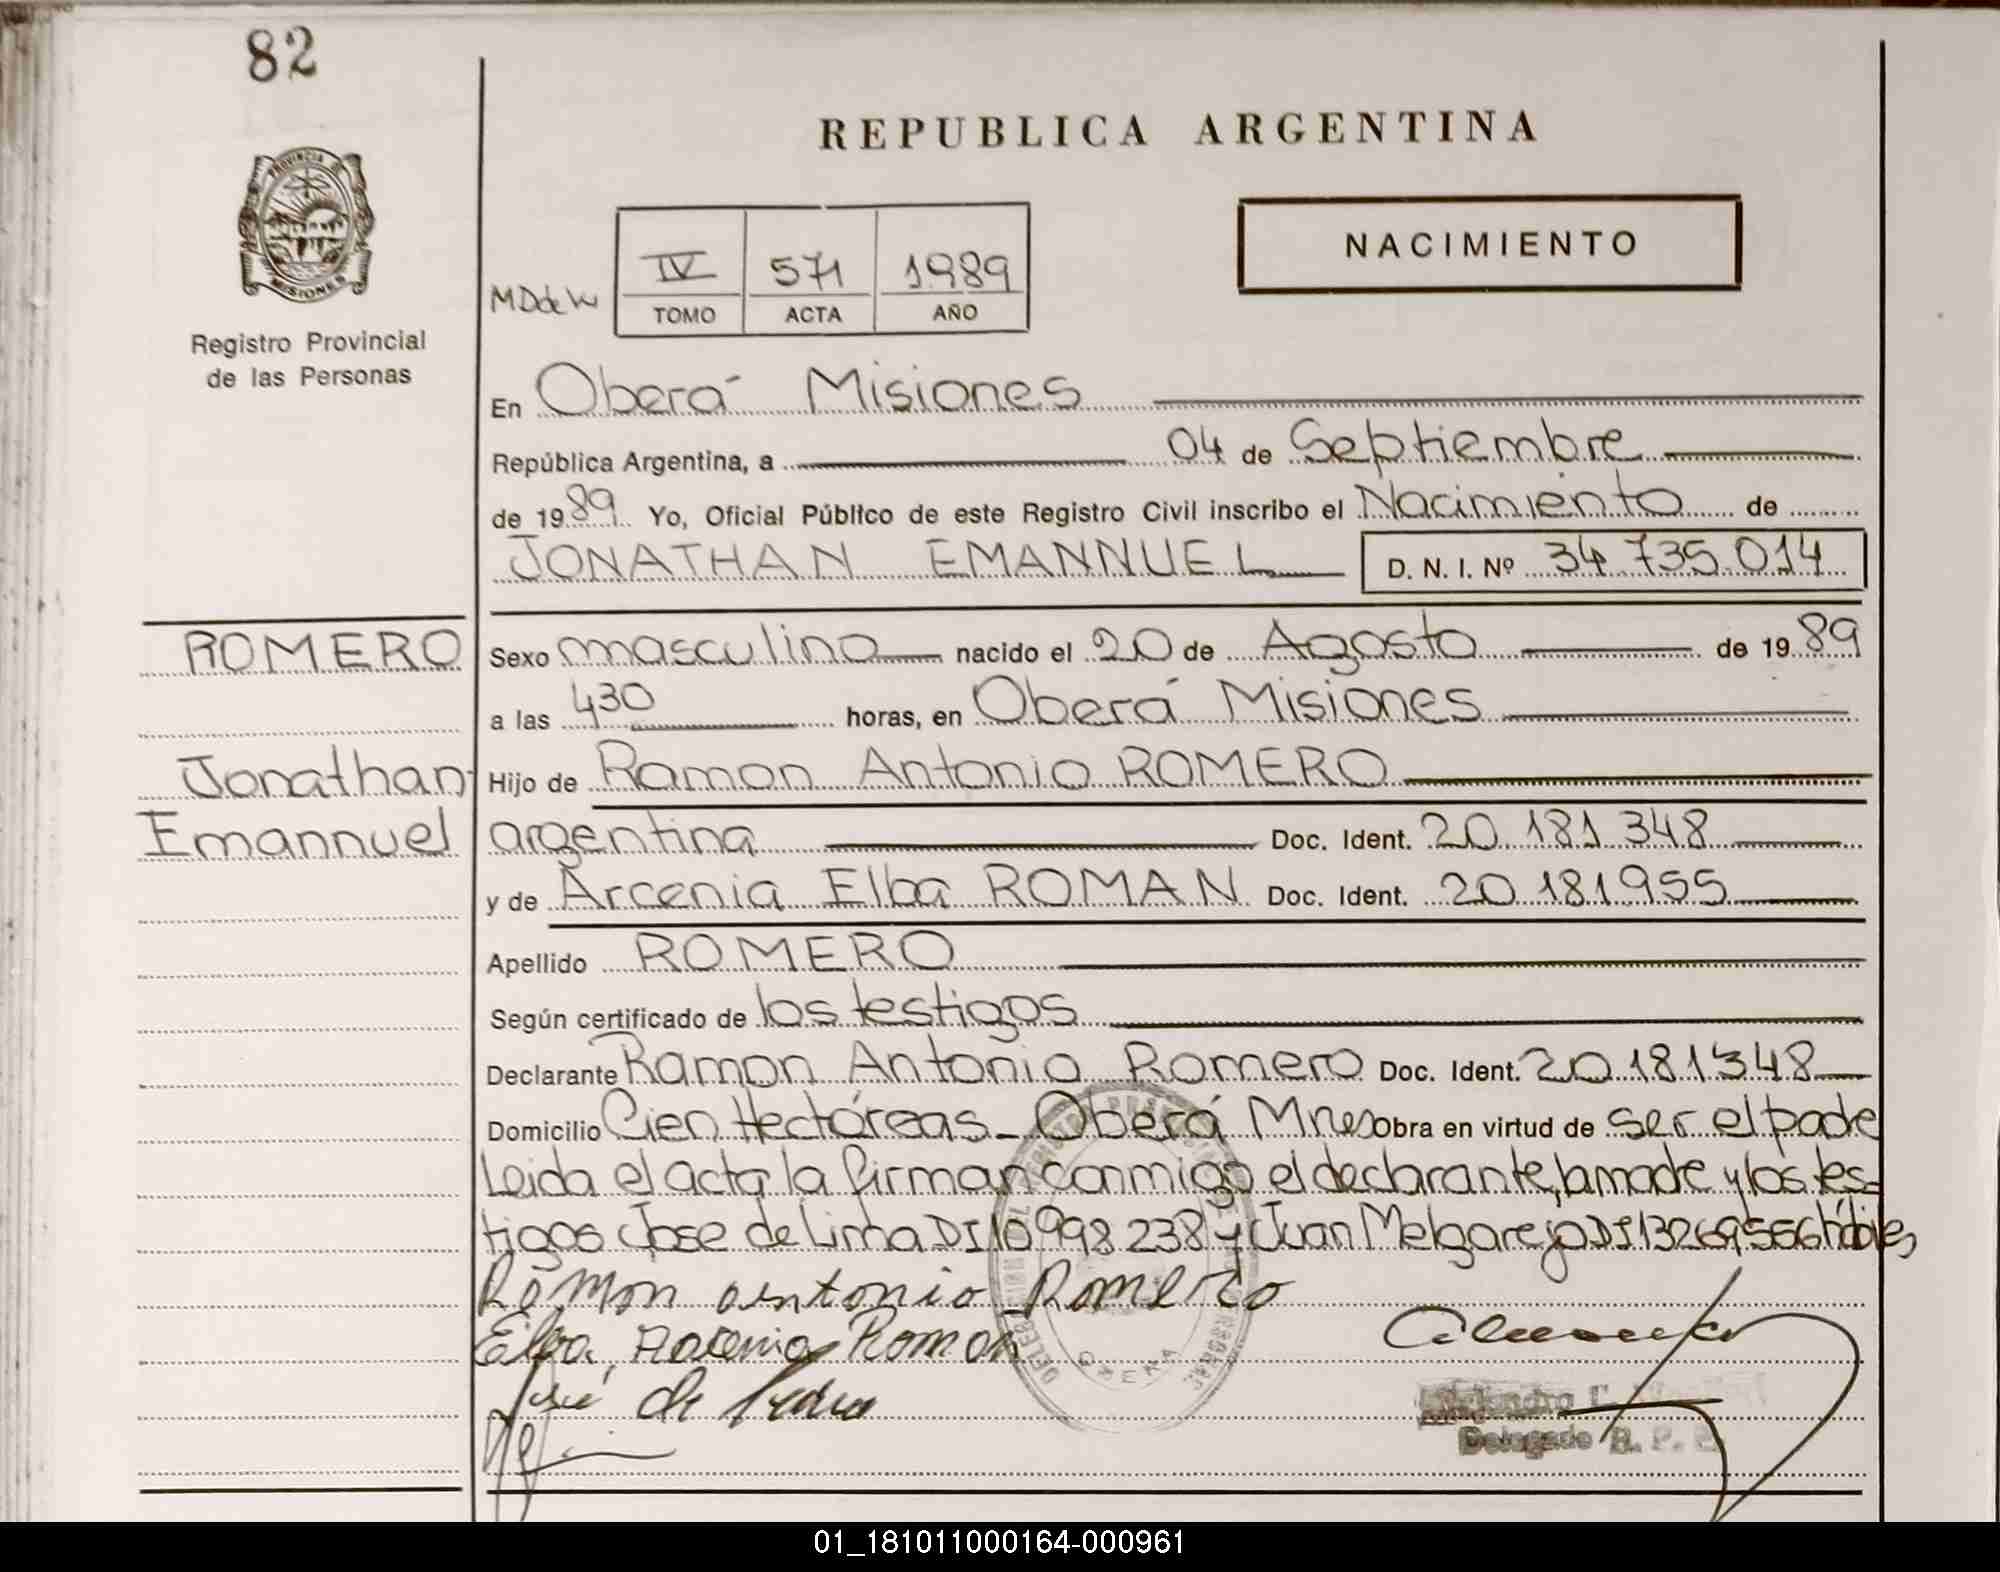 82
REPUBLICA ARGENTINA
NACIMIENTO
PROVINCIA DE
MISIONES
Registro Provincial
de las Personas
IV 571 1989
TOMO ACTA AÑO
En Oberá Misiones
República Argentina, a 04 de Septiembre
de 1989 Yo, Oficial Público de este Registro Civil inscribo el Nacimiento de
JONATHAN EMANNUEL D. N. I. Nº 34.735.014
ROMERO
Jonathan
Emannuel
Sexo masculino nacido el 20 de Agosto de 1989
a las 430 horas, en Oberá Misiones
Hijo de Ramon Antonio ROMERO
argentina Doc. Ident. 20.181.348
y de Arcenia Elba ROMAN Doc. Ident. 20.181.955
Apellido ROMERO
Según certificado de los testigos
Declarante Ramon Antonio Romero Doc. Ident. 20.181348
Domicilio Cien Hectáreas - Oberá Mnes obra en virtud de ser el padre
Leida el acta la firman conmigo el declarante, la madre y los tes-
tigos Jose de Lima DI 10 998 238 y Juan Melgarejo DI 13269556 hábiles
Ramon Antonio Romero
Elba Arcenia Roman
José de
Delegado R. P. P.
01_181011000164-000961